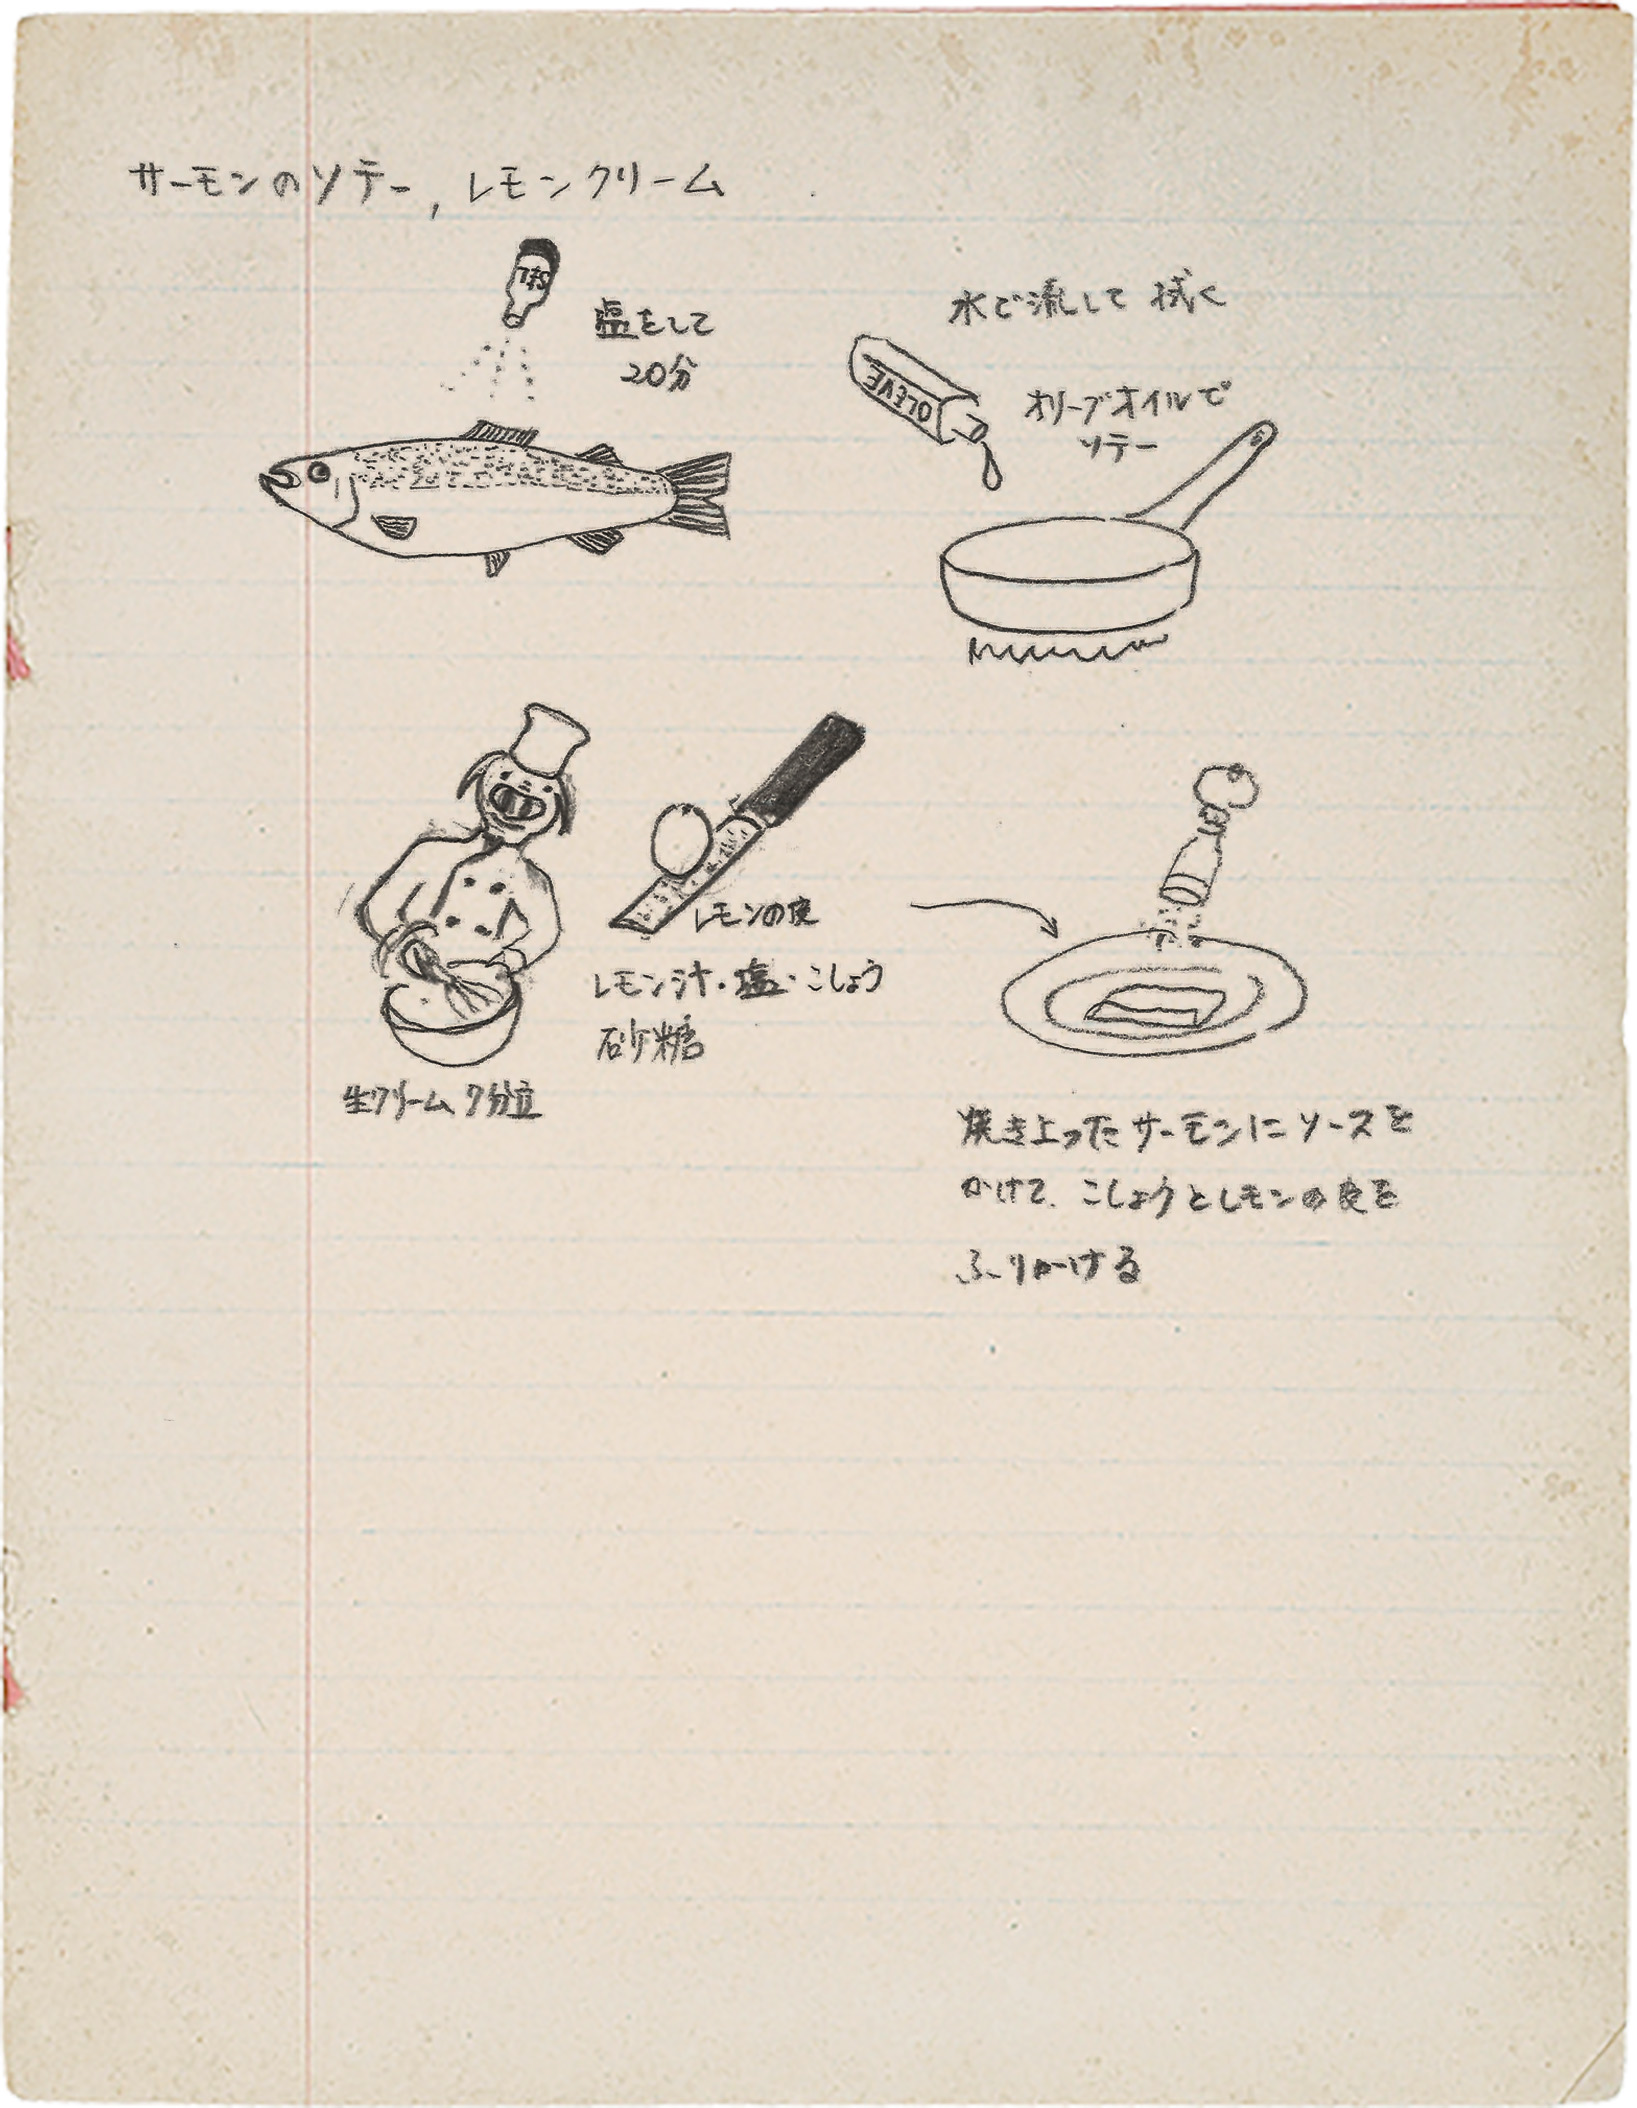 サーモンのソテー, レモンクリーム
塩をして
20分
水で流して 拭く
OLIVE
オリーブオイルで
ソテー
レモンの皮
レモン汁・塩・こしょう
砂糖
生クリーム 7分立
焼き上ったサーモンにソースを
かけて、こしょうとレモンの皮を
ふりかける